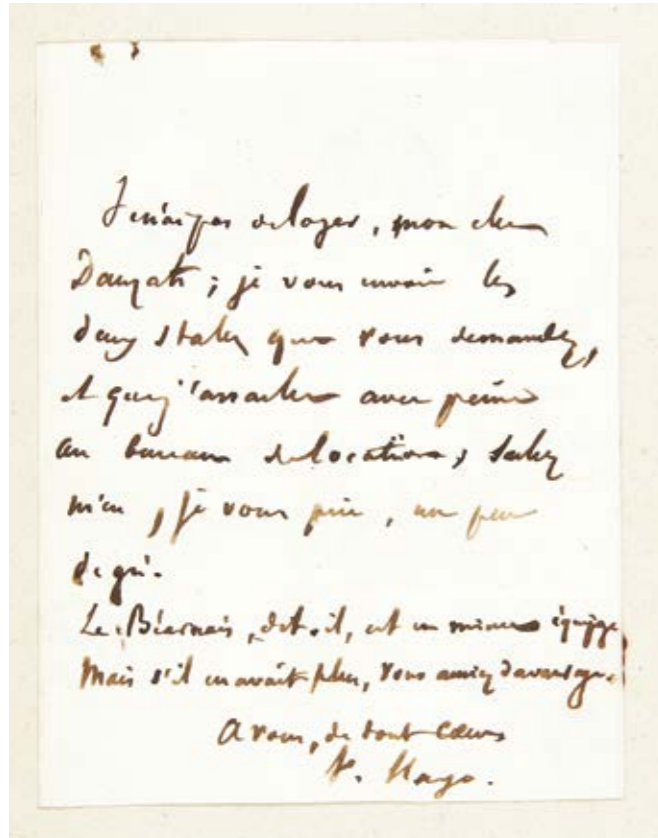 Je n'ai pas de loges, mon cher
Dauzats ; je vous envoie les
deux stalles que vous demandez,
et que j'arrache avec peine
au bureau de location ; sachez
m'en, je vous prie, un peu
de gré.
Le Béarnais, dit-il, est en mince équipage
Mais s'il en avait plus, vous auriez davantage.
A vous, de tout coeur
V. Hugo.